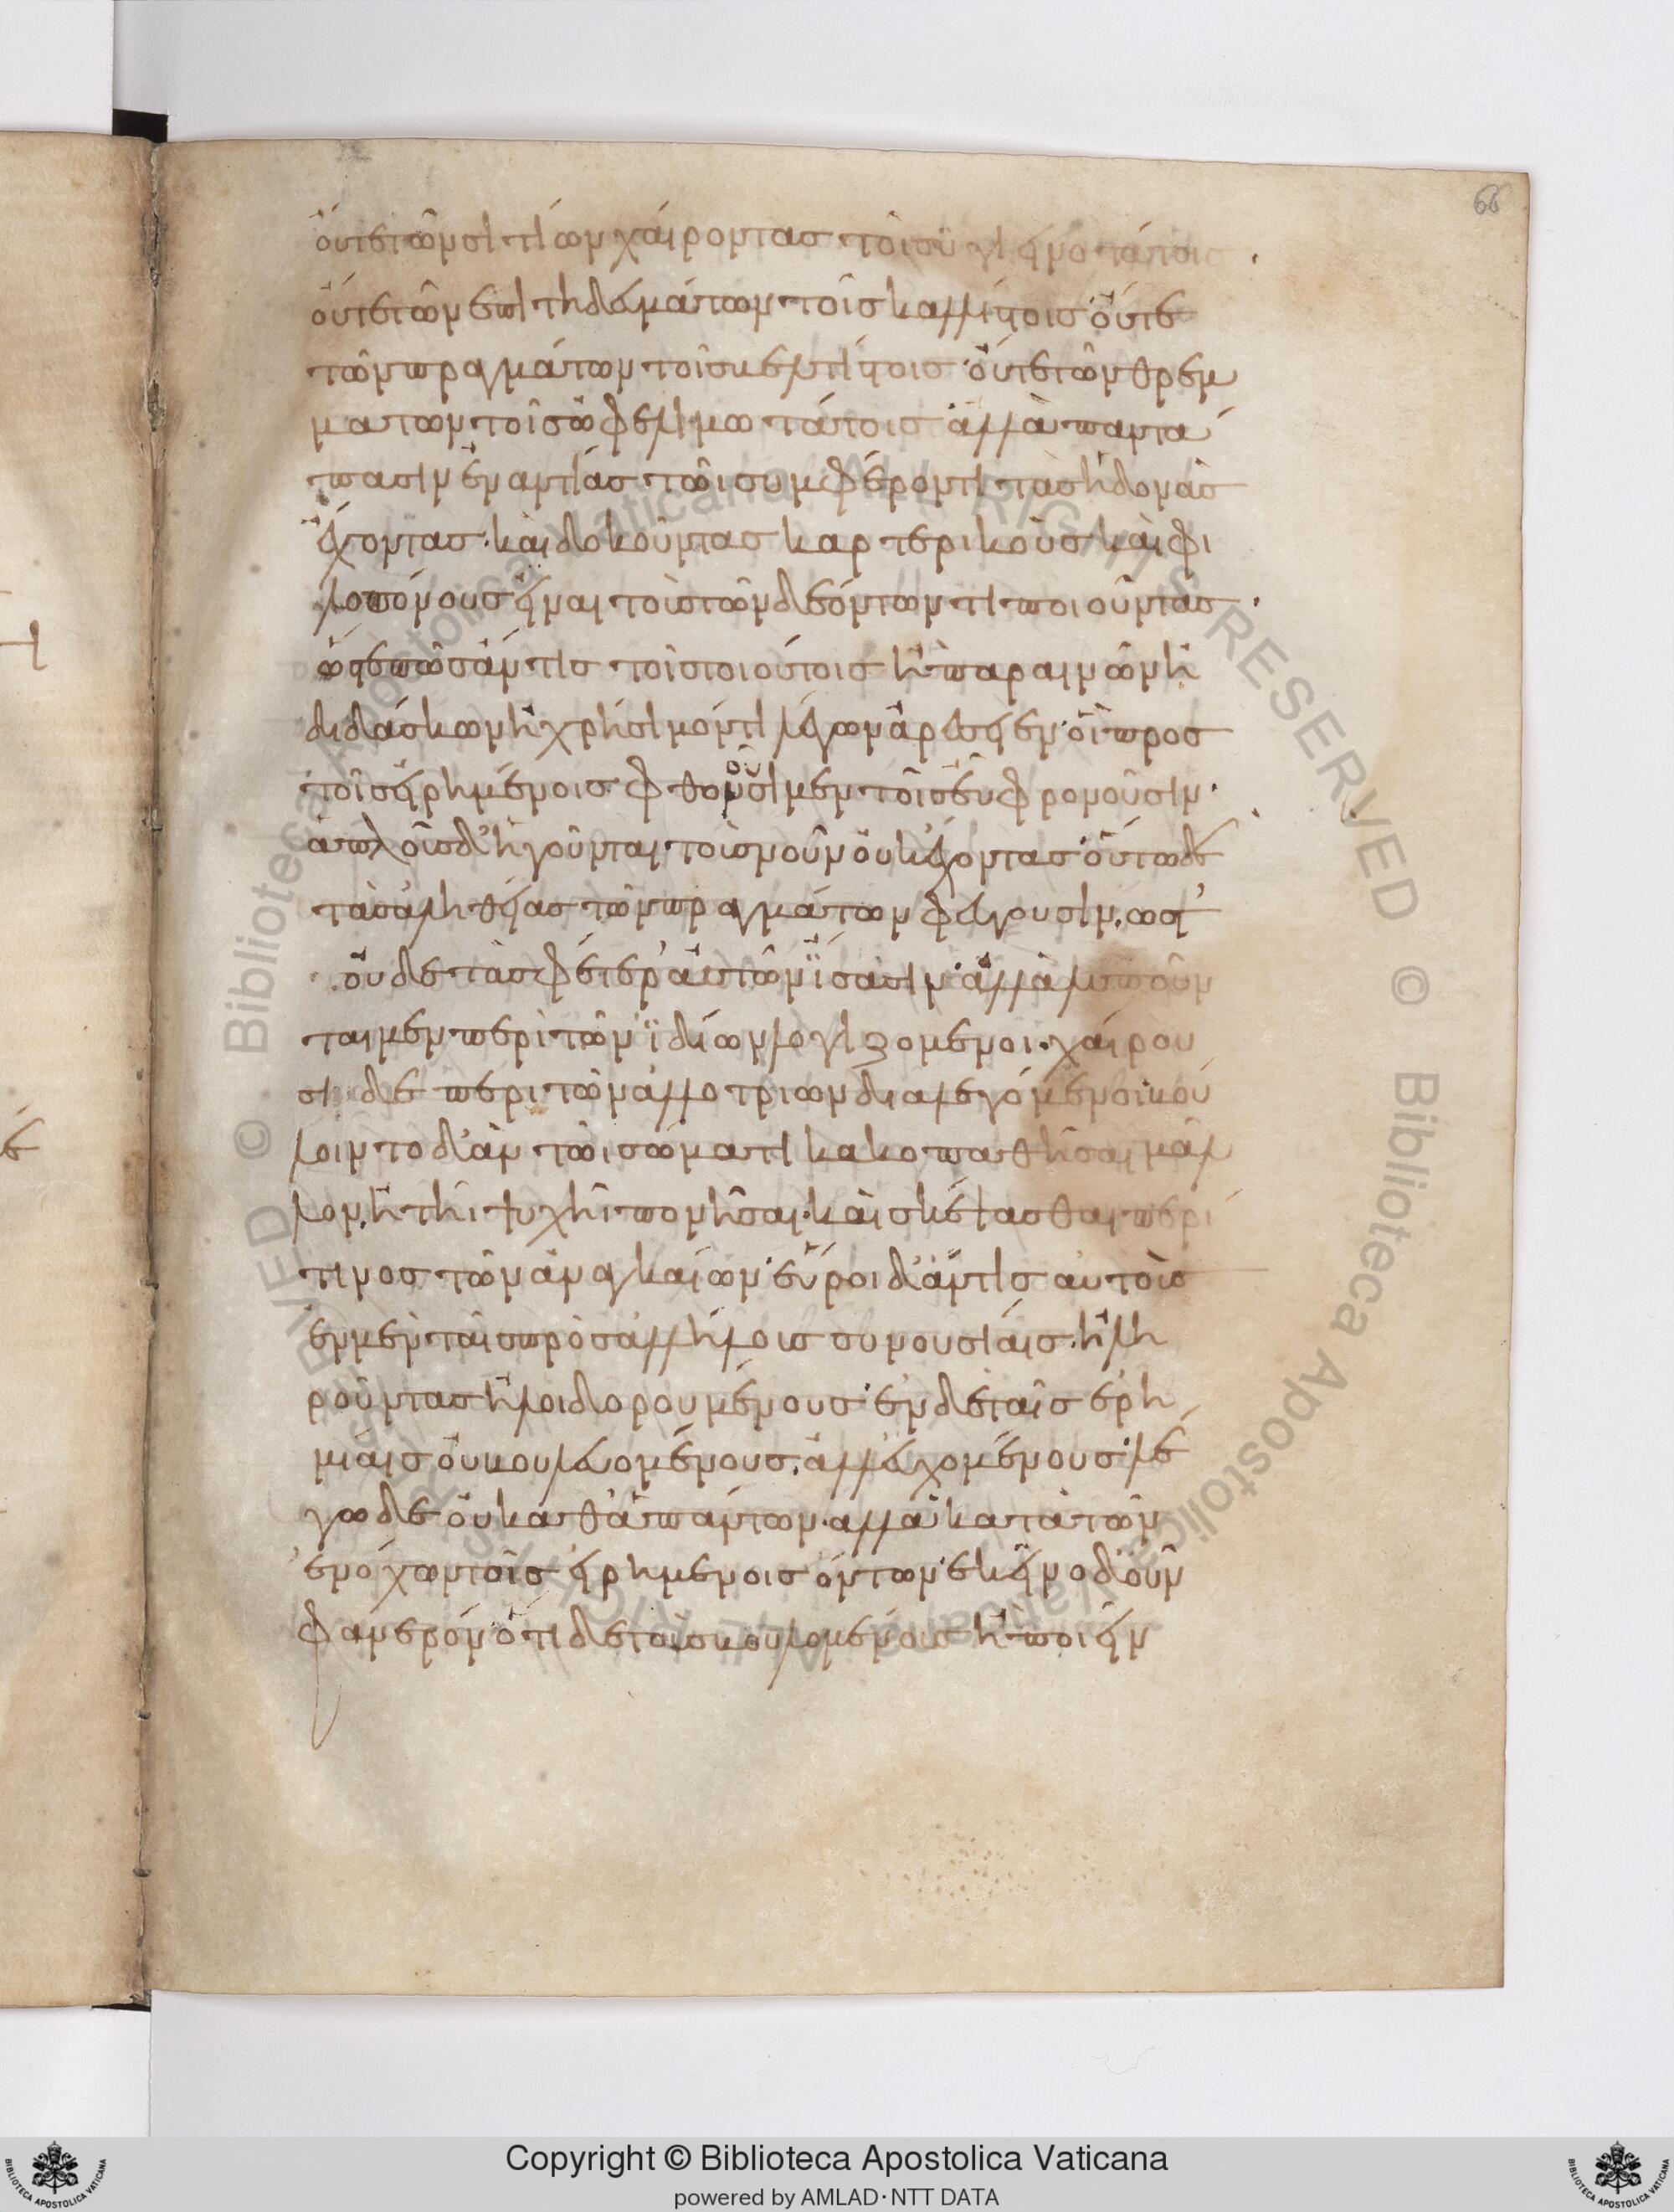 οὔτε τῶν σιτίων χαίροντας τοῖς ὑγιεινοτάτοις·
οὔτε τῶν ἐπιτηδευμάτων τοῖς καλλίστοις· οὔτε
τῶν πραγμάτων τοῖς βελτίστοις· οὔτε τῶν θρεμ
μάτων τοῖς ὠφελιμωτάτοις· ἀλλὰ παντά
πασιν ἐναντίας τῶι συμφέροντι τὰς ἡδονὰς
ἔχοντας· καὶ δοκοῦντας καρτερικοὺς καὶ φι
λοπόνους εἶναι τοὺς τῶν δεόντων τι ποιοῦντας·
ὥστε πῶς ἄν τις τοῖς τοιούτοις ἢ παραινῶν ἢ
διδάσκων ἢ χρήσιμόν τι λέγων ἀρέσειεν· οἳ πρὸς
τοῖς εἰρημένοις φθονοῦσι μὲν τοῖς εὖ φρονοῦσιν·
ἁπλοῦς δ' ἡγοῦνται τοὺς νοῦν οὐκ ἔχοντας· οὕτω δὲ
τὰς ἀληθείας τῶν πραγμάτων φεύγουσιν, ὥστ'
οὐδὲ τὰ σφέτερ' αὐτῶν ἴσασιν· ἀλλὰ λυποῦν
ται μὲν περὶ τῶν ἰδίων λογιζόμενοι· χαίρου
σι δὲ περὶ τῶν ἀλλοτρίων διαλεγόμενοι· βού
λοιντο δ' ἂν τῶι σώματι κακοπαθῆσαι μᾶλ
λον, ἢ τῆι ψυχῆι πονῆσαι· καὶ σκέψασθαι περί
τινος τῶν ἀναγκαίων· εὕροι δ' ἄν τις αὐτοὺς
ἐν μὲν ταῖς πρὸς ἀλλήλους συνουσίαις· ἢ λη
ροῦντας ἢ λοιδορουμένους· ἐν δὲ ταῖς ἐρη
μίαις οὐ βουλευομένους, ἀλλ' εὐχομένους· λέ
γω δὲ οὐ καθ' ἁπάντων· ἀλλὰ κατὰ τῶν
ἐνόχων τοῖς εἰρημένοις ὄντων· ἐκεῖνο δ' οὖν
φανερὸν ὅτι δεῖ τοὺς βουλομένους ἢ ποιεῖν
66
Copyright © Biblioteca Apostolica Vaticana
powered by AMLAD·NTT DATA